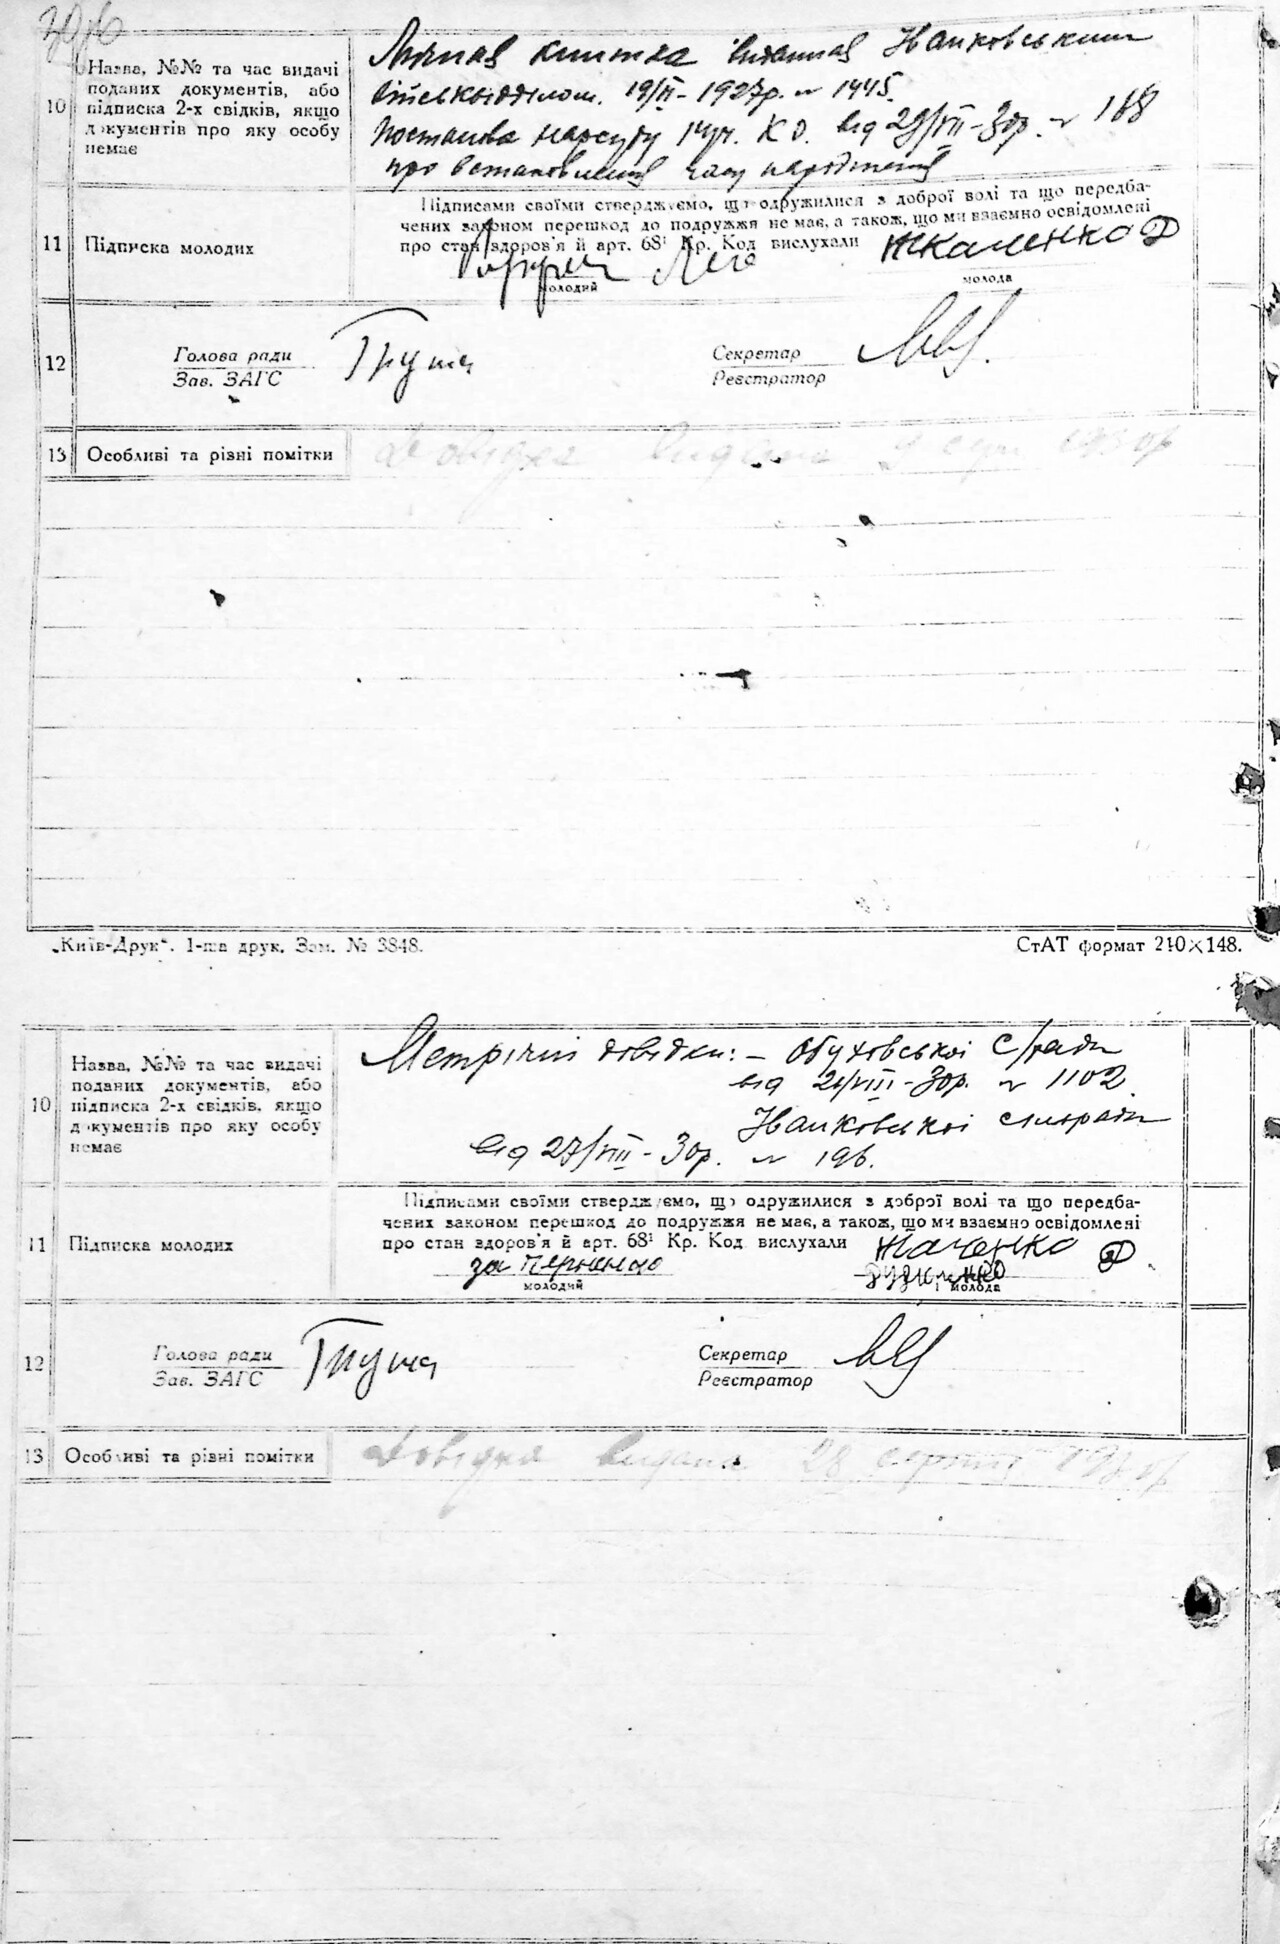 10
Назва, №№ та час видачі
поданих документів, або
підписка 2-х свідків, якщо
документів про яку особу
немає
книжка видана Іванковським
військвідділом. 1927р. № 1445.
Постанова нарсуду від 29/VII-30р. № 168
про встановлення часу народження
11
Підписка молодих
Підписами своїми стверджуємо, що одружилися з доброї волі та що передба-
чених законом перешкод до подружжя не має, а також, що ми взаємно освідомлені
про стан здоров'я й арт. 68¹ Кр. Код вислухали
Ткаленко
молодий
молода
12
Голова ради
Зав. ЗАГС
Секретар
Реєстратор
13
Особливі та різні помітки
Довідка видана
„Київ-Друк“. 1-ша друк. Зам. № 3848.
СтАТ формат 210×148.
10
Назва, №№ та час видачі
поданих документів, або
підписка 2-х свідків, якщо
документів про яку особу
немає
Метричні довідки: – Обуховської с/ради
від /VIII-30р. № 1102
Іванковської сільради
від 27/VIII-30р. № 196.
11
Підписка молодих
Підписами своїми стверджуємо, що одружилися з доброї волі та що передба-
чених законом перешкод до подружжя не має, а також, що ми взаємно освідомлені
про стан здоров'я й арт. 68¹ Кр. Код вислухали
молодий
молода
12
Голова ради
Зав. ЗАГС
Секретар
Реєстратор
13
Особливі та різні помітки
Довідка видана 28 серпня 1930р